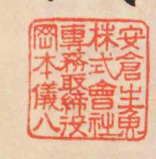 安倉生魚
株式會社
專務取締役
岡本儀八